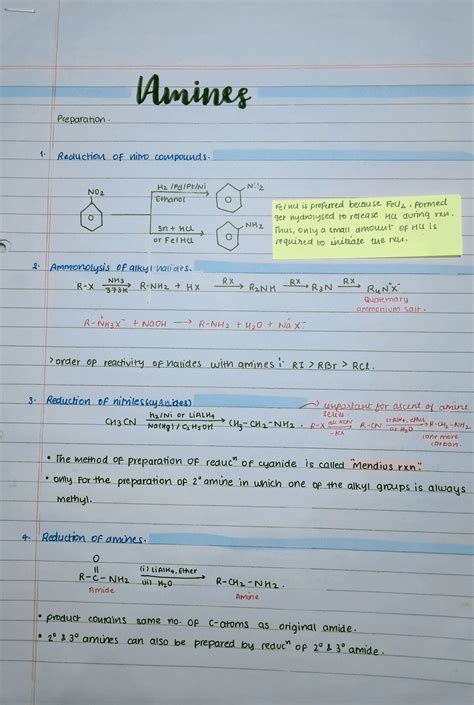 Amines
Preparation.
1. Reduction of nitro compounds.
NO2
H2/Pd/Pt/Ni
Ethanol
Sn + HCl
or Fe/HCl
NH2
Fe/HCl is preferred because FeCl2, formed
get hydrolysed to release HCl during rxn.
Thus, only a small amount of HCl is
required to initiate the rxn.
2. Ammonolysis of alkyl halides.
R-X NH3 373K → R-NH2 + HX RX → R2NH RX → R3N RX → R4N⁺X⁻
Quaternary
ammonium salt.
R-NH3X⁻ + NaOH → R-NH2 + H2O + Na⁺X⁻
> order of reactivity of halides with amines :- RI > RBr > RCl.
3. Reduction of nitriles(cyanides)
→ important for ascent of amine
series
CH3CN H2/Ni or LiAlH4 Na(Hg)/C2H5OH → CH3-CH2-NH2.
R-X alc KCN -KX → R-CN LiAlH4, ether or H2O → R-CH2-NH2
(one more
carbon.
• The method of preparation of reducⁿ of cyanide is called "Mendius rxn".
• only for the preparation of 2° amine in which one of the alkyl groups is always
methyl.
4. Reduction of amines.
O
R-C-NH2 (i) LiAlH4, Ether (ii) H2O → R-CH2-NH2.
Amide Amine
• product contains same no. of C-atoms as original amide.
• 2° & 3° amines can also be prepared by reducⁿ of 2° & 3° amide.